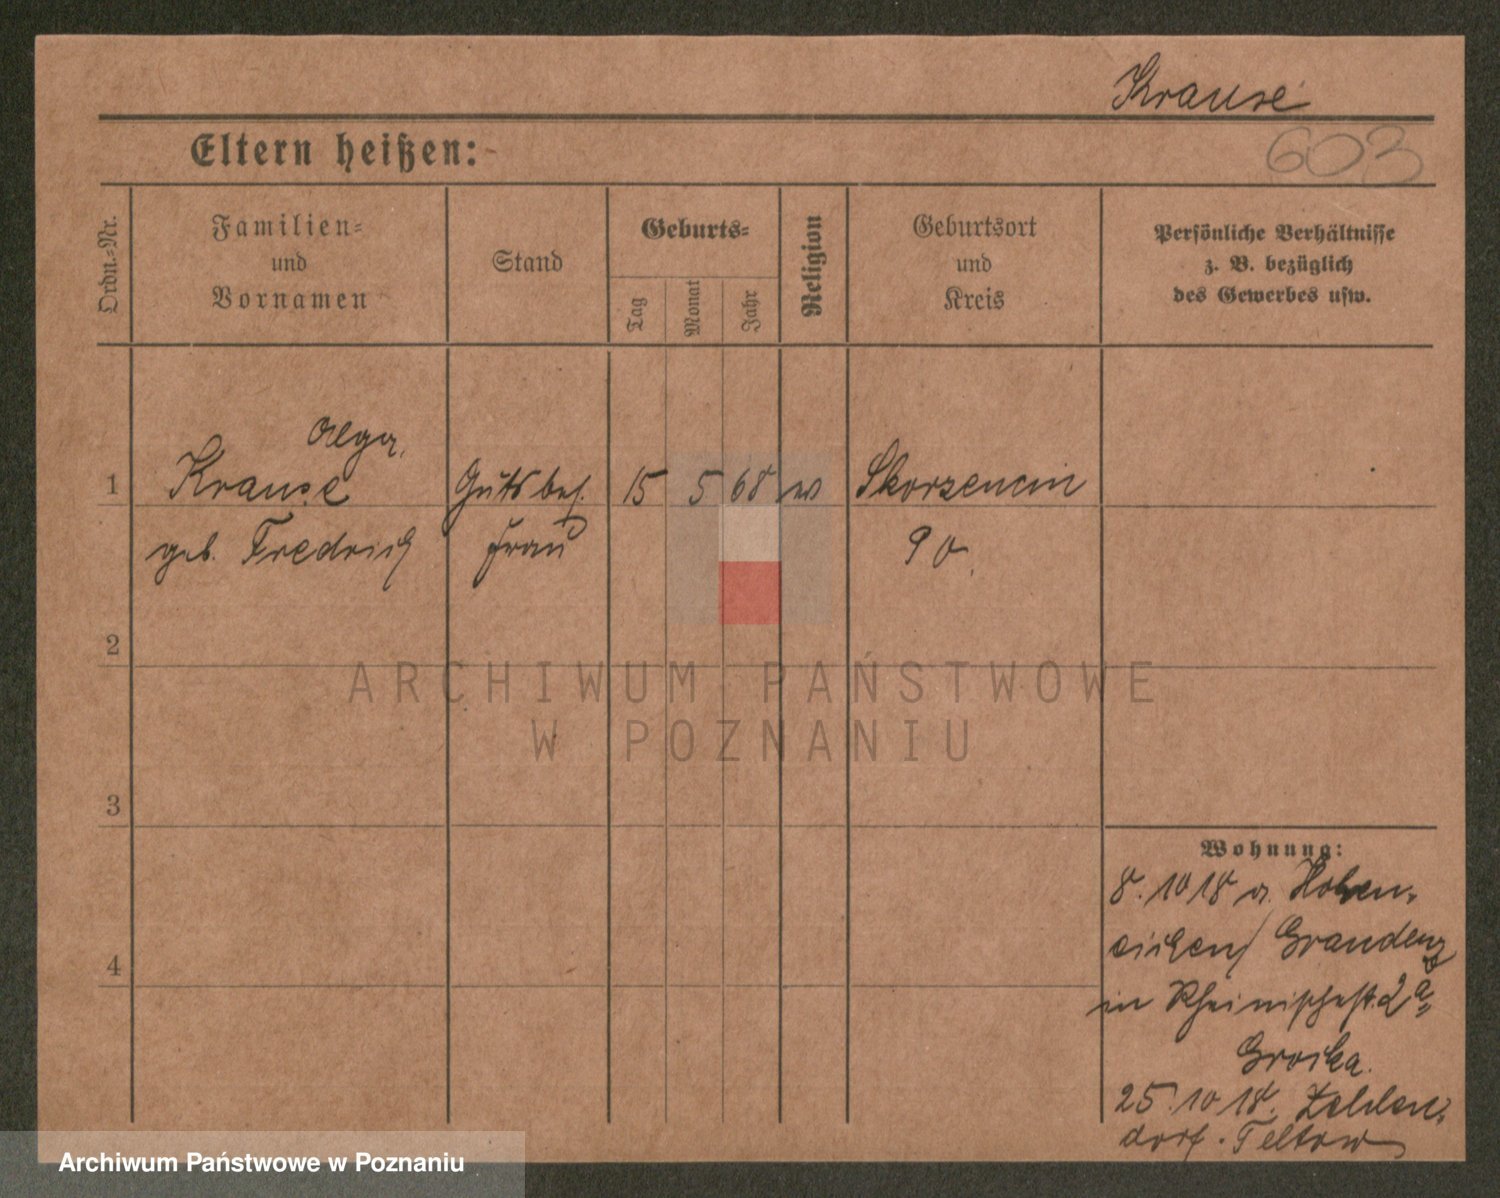 Krause
603
Eltern heißen:
Ordn.-Nr.
Familien-
und
Vornamen
Stand
Geburts-
Tag
Monat
Jahr
Religion
Geburtsort
und
Kreis
Persönliche Verhältnisse
z. B. bezüglich
des Gewerbes usw.
Olga,
1 Krause Gutsbes. 15 5 68 Skorzencin
geb. Fredrich Frau
2
3
4
ARCHIWUM PAŃSTWOWE
W POZNANIU
Wohnung:
8.10 18 a. Hohen-
eichen/ Graudenz
in Rheinischestr. 2a
Groika.
25.10 18. Zehlen-
dorf. Teltow
Archiwum Państwowe w Poznaniu